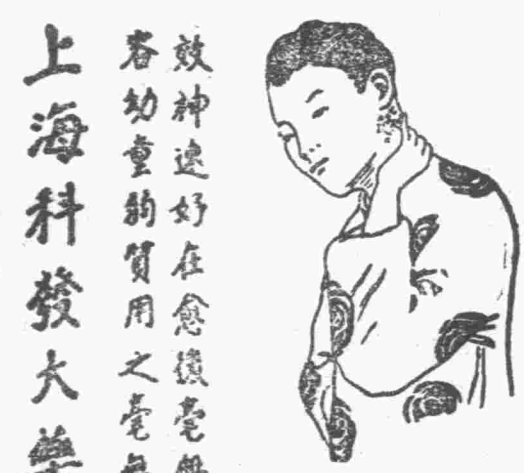 效神速好在愈後毫無
幼童弱質用之毫無
上海科發大藥